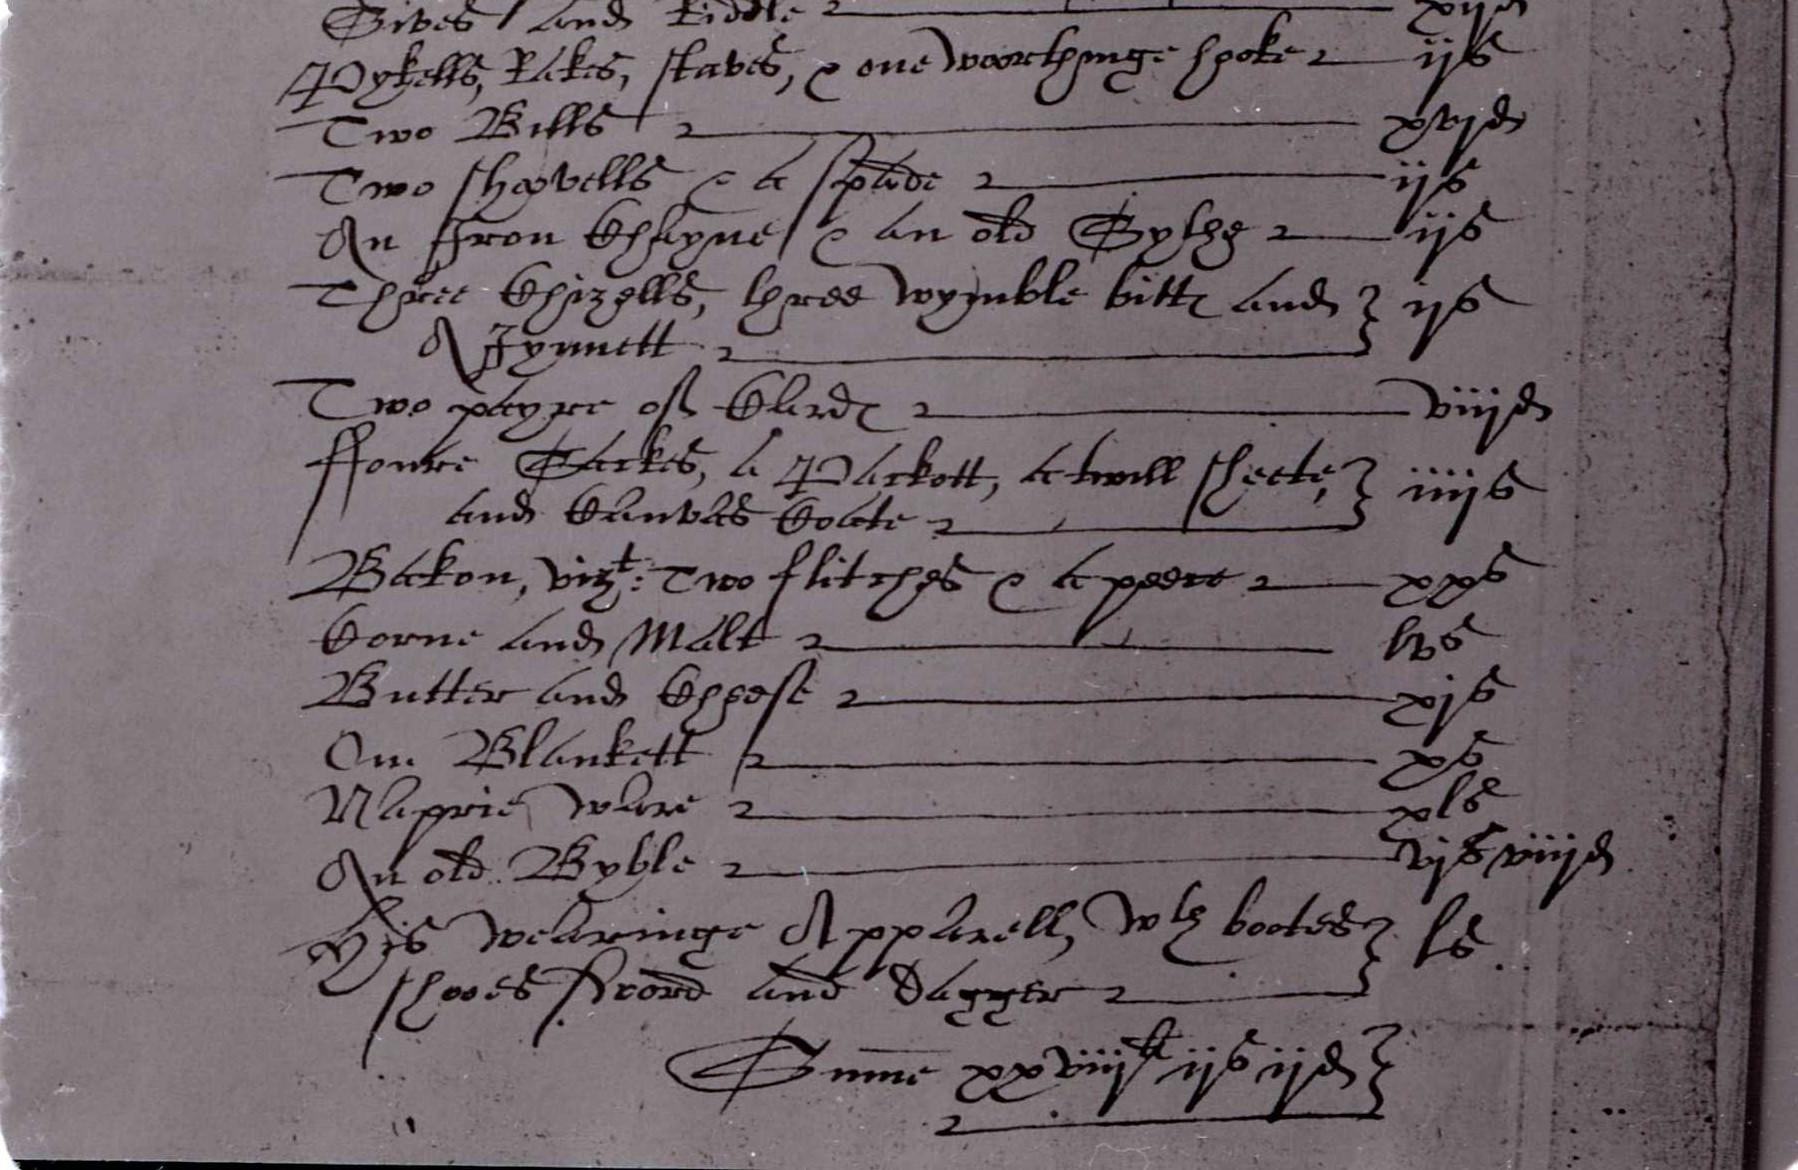 Sives and Riddle xijd
Pykells, Rakes, staves, & one woorthinge hooke ijs
Two Bills xvjd
Two shoovells & a spade ijs
An Iron Chayne & an old Sythe ijs
Three Chizells, three wymble bitts and ijs
A Gynnett
Two payre of Cards viijd
ffoure Sackes, a Packott, a twill sheete, iiijs
and Canvas Coate
Bakon, vizt: Two flitches & a peece xxs
Corne and Malt lvs
Butter and Cheese xjs
One Blankett xs
Naprie ware xls
An old Byble vjs viijd
His wearinge Apparell, wth bootes ls
shooes sword and Dagger
Summe xxviijli ijs ijd